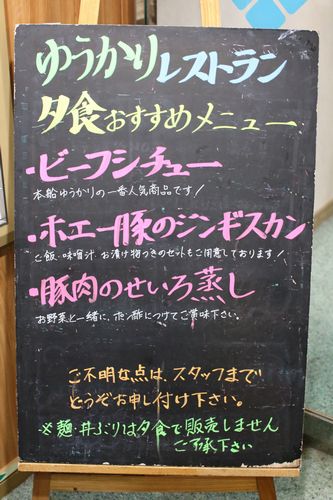 ゆうかりレストラン
夕食おすすめメニュー
・ビーフシチュー
本船ゆうかりの一番人気商品です！
・ホエー豚のジンギスカン
ご飯・味噌汁・お漬け物つきのセットもご用意しております！
・豚肉のせいろ蒸し
お野菜と一緒に、ポン酢につけてご賞味下さい。
ご不明な点は、スタッフまで
どうぞお申し付け下さい。
※麺・丼ぶりは夕食で販売しません
ご了承下さい